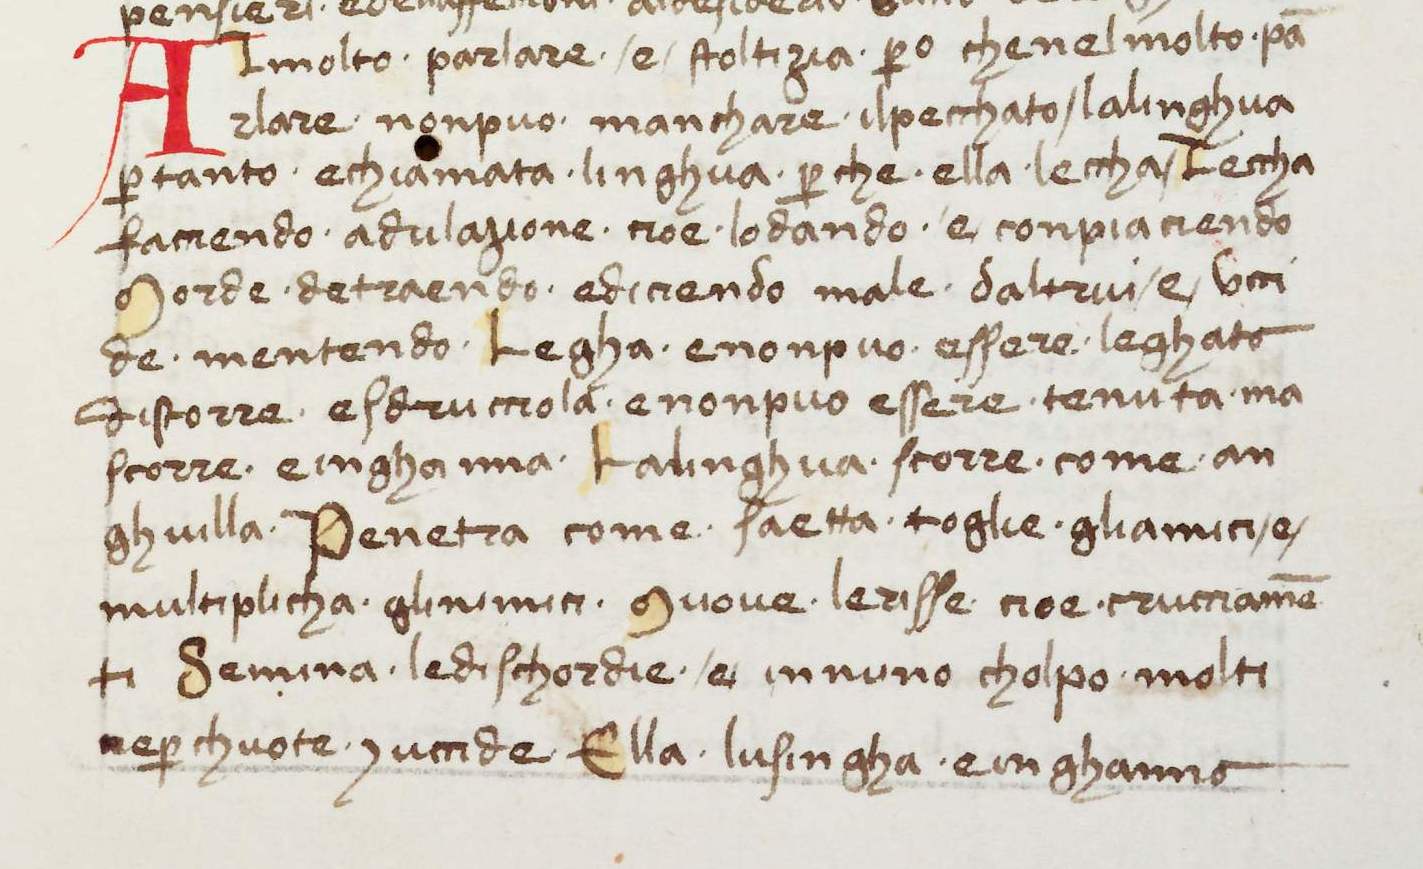 pensieri.
Al molto · parlare · /e/ stoltizia · ꝑo chenelmolto · pā
rlare · nonpuo · manchare · ilpecchato / lalinghua
ꝑtanto · echiamata · linghua · ꝑche · ella · leccha / Leccha
faciendo · adulazione · cioe · lodando · /e/ conpiaciendo
Morde · detraendo · ediciendo male · daltrui /e/ Ucci
de · mentendo · Legha · enonpuo · essere · leghato
distorre · esdrucciola · enonpuo essere · tenuta · ma
scorre · einghanna · Lalinghua · scorre · come · an
ghuilla · Penetra come · saetta · toglie · gliamici /e/
multiplicha · glinimici · Muove · lerisse · cioe · crucciamē
ti Semina · ledischordie · /e/ innuno cholpo · molti
neꝑchuote · ⁊uccide · Ella · lusingha · einghanno